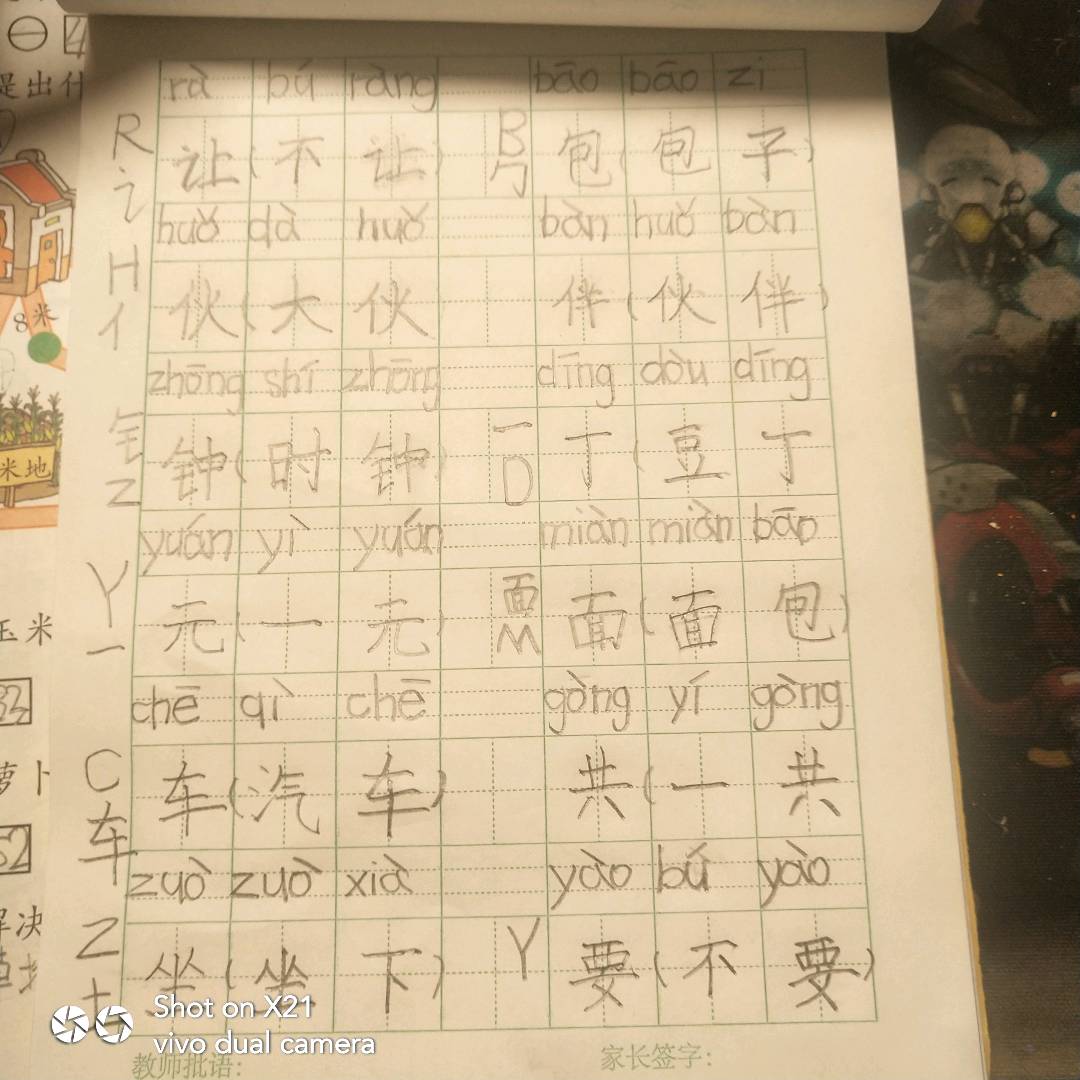 rà bú ràng bāo bāo zi
R 让(不 让) B 包(包 子)
讠 勹
huǒ dà huǒ bàn huǒ bàn
H 伙(大 伙 伴(伙 伴)
亻
zhōng shí zhōng dīng dòu dīng
钅 钟(时 钟) 一 丁(豆 丁
Z D
yuán yì yuán miàn miàn bāo
Y 元(一 元) 面 面(面 包)
一 M
chē qì chē gòng yí gòng
C 车(汽 车) 共(一 共
车
zuò zuò xià yào bú yào
Z 坐(坐 下) Y 要(不 要)
土
教师批语: 家长签字:
提出什
8米
米地
玉米
萝卜
解决
Shot on X21
vivo dual camera